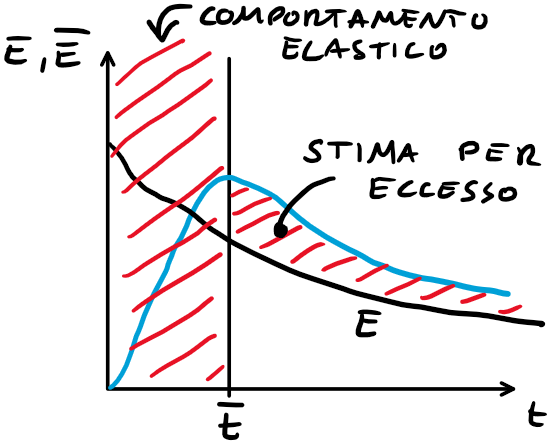 COMPORTAMENTO
ELASTICO
E, E̅
STIMA PER
ECCESSO
E
t̅
t